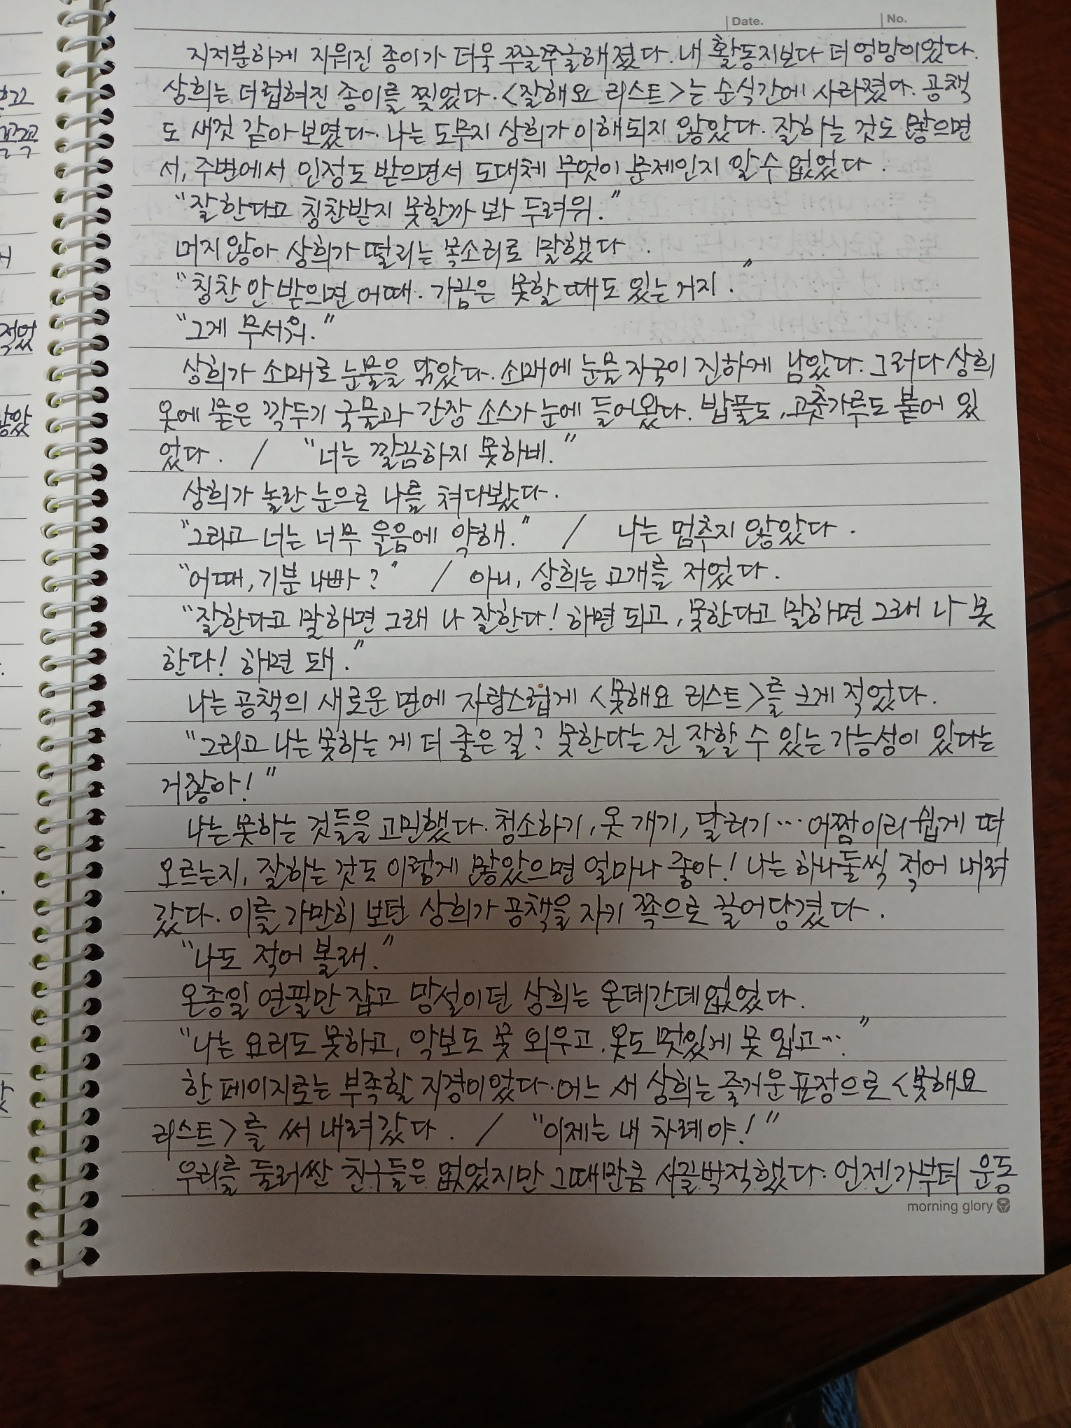 Date.
No.
지저분하게 지워진 종이가 더욱 쭈글쭈글해졌다. 내 활동지보다 더 엉망이었다.
상희는 더럽혀진 종이를 찢었다. <잘해요 리스트>는 순식간에 사라졌다. 공책
도 새것 같아 보였다. 나는 도무지 상희가 이해되지 않았다. 잘하는 것도 많으면
서, 주변에서 인정도 받으면서 도대체 무엇이 문제인지 알 수 없었다.
"잘한다고 칭찬받지 못할까 봐 두려워."
머지않아 상희가 떨리는 목소리로 말했다.
"칭찬 안 받으면 어때. 가끔은 못할 때도 있는 거지."
"그게 무서워."
상희가 소매로 눈물을 닦았다. 소매에 눈물 자국이 진하게 남았다. 그러다 상희
옷에 묻은 깍두기 국물과 간장 소스가 눈에 들어왔다. 밥풀도, 고춧가루도 붙어 있
었다. / "너는 깔끔하지 못하네."
상희가 놀란 눈으로 나를 쳐다봤다.
"그리고 너는 너무 울음에 약해." / 나는 멈추지 않았다.
"어때, 기분 나빠?" / 아니, 상희는 고개를 저었다.
"잘한다고 말하면 그래 나 잘한다! 하면 되고, 못한다고 말하면 그래 나 못
한다! 하면 돼."
나는 공책의 새로운 면에 자랑스럽게 <못해요 리스트>를 크게 적었다.
"그리고 나는 못하는 게 더 좋은 걸? 못한다는 건 잘할 수 있는 가능성이 있다는
거잖아!"
나는 못하는 것들을 고민했다. 청소하기, 옷 개기, 달리기… 어쩜 이리 쉽게 떠
오르는지, 잘하는 것도 이렇게 많았으면 얼마나 좋아! 나는 하나둘씩 적어 내려
갔다. 이를 가만히 보던 상희가 공책을 자기 쪽으로 끌어당겼다.
"나도 적어 볼래."
온종일 연필만 잡고 망설이던 상희는 온데간데없었다.
"나는 요리도 못하고, 악보도 못 외우고, 옷도 멋있게 못 입고…."
한 페이지로는 부족할 지경이었다. 어느 새 상희는 즐거운 표정으로 <못해요
리스트>를 써 내려갔다. / "이제는 내 차례야!"
우리를 둘러싼 친구들은 없었지만 그때만큼 시끌벅적했다. 언젠가부터 운동
morning glory